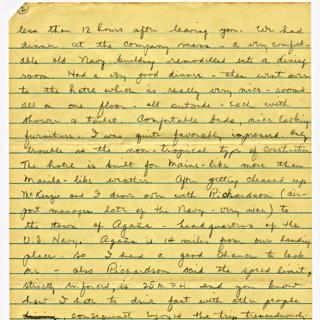 2
less than 12 hours after leaving you. We had
dinner at the company mess - a very comfort-
able old Navy building remodelled into a dining
room. Had a very good dinner - then went over
to the hotel which is really very nice - rooms
all on one floor - all outside - each with
shower & toilet. Comfortable beds, nice looking
furniture. I was quite favorably impressed. Only
trouble is the non-tropical type of construction
The hotel is built for Maine-like more than
Manila-like weather. After getting cleaned up
McKenzie and I drove over with Richardson (air-
port manager late of the Navy - very nice) to
the town of Agaña - headquarters of the
U.S. Navy. Agaña is 14 miles from our landing
place. So I had a good chance to look
- also Richardson said the speed limit,
strictly enforced, is 25 M.P.H. and you know
how I hate to drive fast with other people
consequently enjoyed the trip tremendously